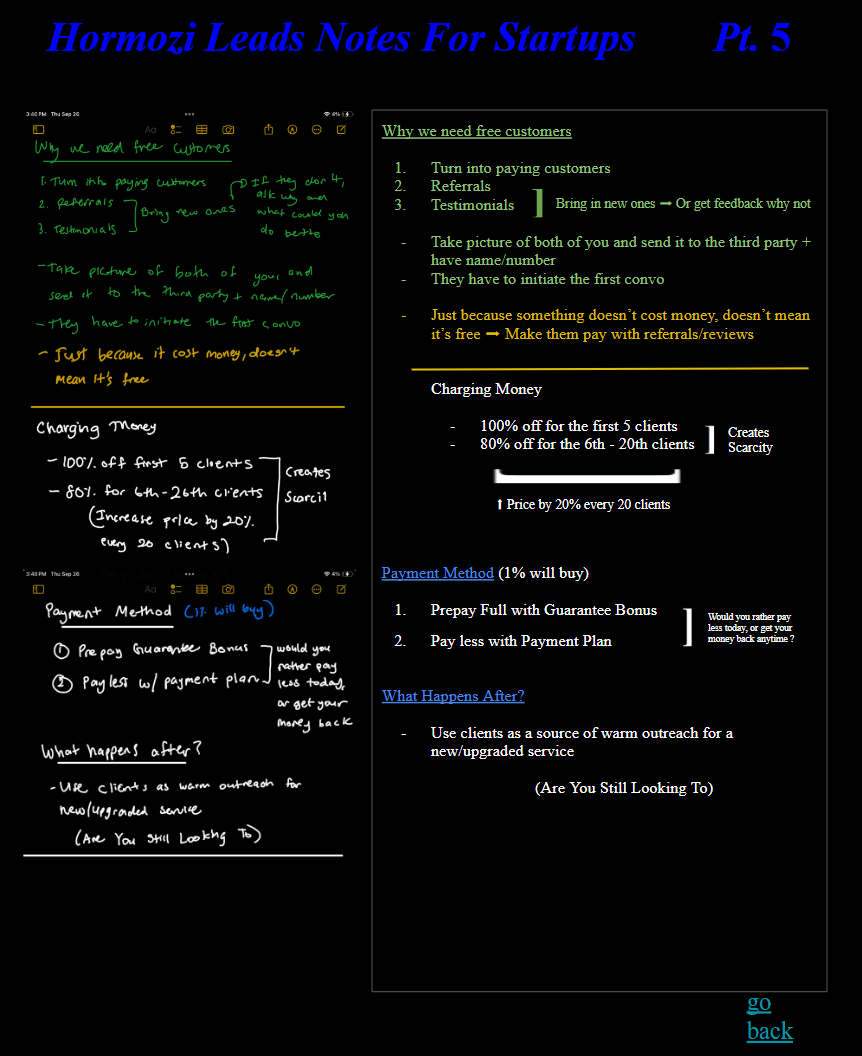 Hormozi Leads Notes For Startups Pt. 5
3:40 PM Thu Sep 26
4%
Aa
Why we need free customers
1. Turn into paying customers
2. Referrals
3. Testimonials
Bring new ones
If they don't,
ask why and
what could you
do better
- Take picture of both of you, and
send it to the third party + name/number
- They have to initiate the first convo
- Just because it cost money, doesn't
mean it's free
Charging Money
- 100% off first 5 clients
- 80% for 6th - 26th clients
(Increase price by 20%
every 20 clients)
Creates
Scarcit
3:40 PM Thu Sep 26
4%
Aa
Payment Method (1% will buy)
1 Prepay Guarantee Bonus
2 Pay less w/ payment plan
would you
rather pay
less today,
or get your
money back
What happens after?
- Use clients as warm outreach for
new/upgraded service
(Are You Still Looking To)
Why we need free customers
1. Turn into paying customers
2. Referrals
3. Testimonials
Bring in new ones ➞ Or get feedback why not
- Take picture of both of you and send it to the third party +
have name/number
- They have to initiate the first convo
- Just because something doesn't cost money, doesn't mean
it's free ➞ Make them pay with referrals/reviews
Charging Money
- 100% off for the first 5 clients
- 80% off for the 6th - 20th clients
Creates
Scarcity
⬆ Price by 20% every 20 clients
Payment Method (1% will buy)
1. Prepay Full with Guarantee Bonus
2. Pay less with Payment Plan
Would you rather pay
less today, or get your
money back anytime ?
What Happens After?
- Use clients as a source of warm outreach for a
new/upgraded service
(Are You Still Looking To)
go
back